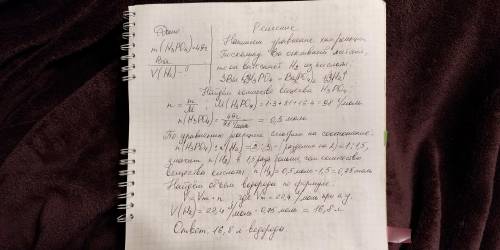 Дано
Решение
m(H₃PO₄)=49г
Напишем уравнение хим реакции
Ba
V(H₂)-?
то он вытеснит H₂ из кислоты
3Ba+2H₃PO₄ = Ba₃(PO₄)₂ + 3H₂↑
Найдём количество вещества H₃PO₄:
n = m/M ; M(H₃PO₄) = 1·3+31+16·4 = 98 г/моль
n(H₃PO₄) = 49г/98 г/моль = 0,5 моль
По уравнению реакции смотрим на соотношение:
n(H₃PO₄) : n(H₂) = 2:3 - (разделим на 2) = 1:1,5,
значит, n(H₂) в 1,5 раз больше, чем количество
вещества кислоты n(H₂) = 0,5 моль·1,5 = 0,75 моль
Найдём объём водорода по формуле:
V = Vm · n, где Vm = 22,4 л/моль при н.у.
V(H₂) = 22,4 л/моль · 0,75 моль = 16,8 л
Ответ: 16,8 л водорода